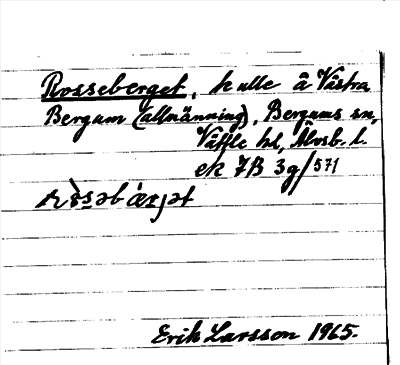 Rosseberget, kulle å Västra
Bergum (allmänning), Bergums sn,
Vättle hd, Älvsb. l.
ek 7B 3g/571
Erik Larsson 1965.